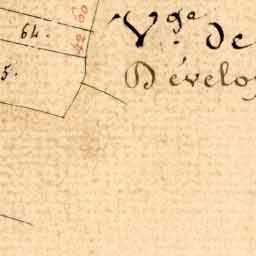 64.
42 60
Vge de
5.
Dévelo